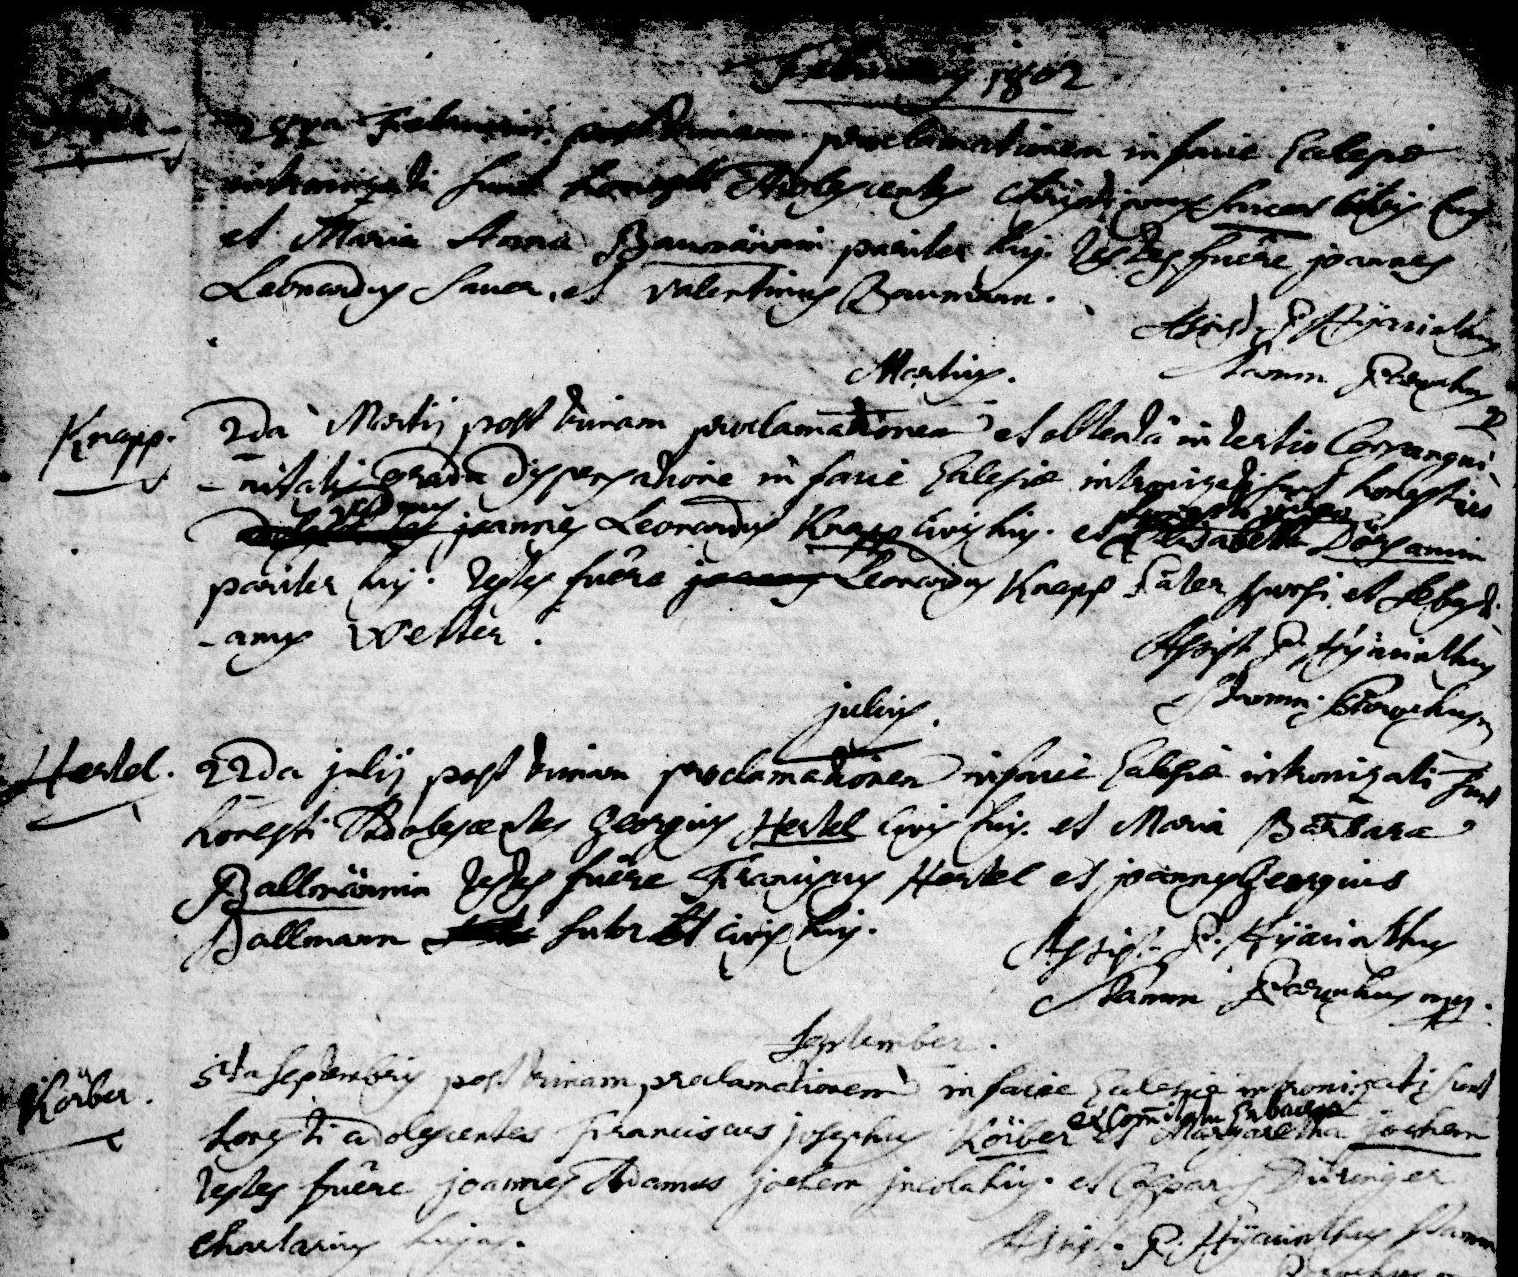 Februarius 1802
Februarii post trinam proclamationem in facie Ecclesiae
intronizati sunt honesti Adolescentes Christianus Sauer Civis huj
et Maria Anna Baumännin pariter huj. testes fuêre joannes
Leonardus Sauer, et Valentinus Baumann.
Assist. P. Hyacinthus
Stamm Parochus
Martius.
Knapp. 2da Martij post trinam proclamationem et obtenta in tertio Consangui-
-nitatis gradu dispensatione in facie Ecclesiae intronizati sunt honestus
viduus joannes Leonardus Knapp Civis huj. et Elisabetha Dörsamin
pariter huj. testes fuêre Leonardus Knapp Pater sponsi et Sebasti-
-anus Wetter.
Assist. P. Hyacinthus
Stamm. Parochus
julius.
Hertel. 22da julij post trinam proclamationem in facie Ecclesiae intronizati sunt
honesti Adolescentes Georgius Hertel Civis huj. et Maria Barbara
Ballmännin testes fuêre Franciscus Hertel et joannes Georgius
Ballmann civis huj.
Assist. P. Hyacinthus
Stamm Parochus mp.
September.
Körber. 5ta Septembris post trinam proclamationem in facie Ecclesiae intronizati sunt
ex Comitatu Erbacensi
honesti adolescentes Franciscus josephus Körber et Margaretha jochem
testes fuêre joannes Adamus jochem incola huj. et Casparus Düringer
Chartarius hujas.
Assist. P. Hyacinthus Stamm
Parochus